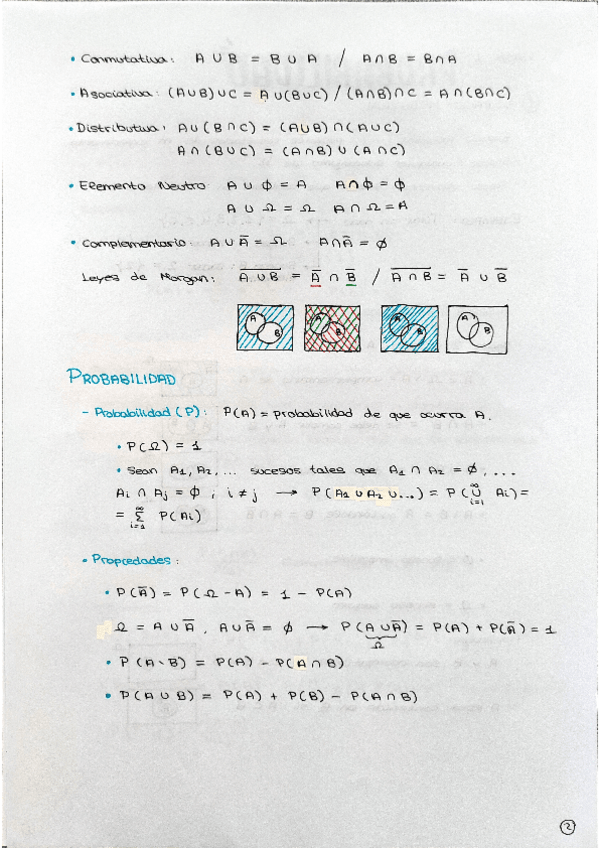 • Conmutativa: A ∪ B = B ∪ A / A ∩ B = B ∩ A
• Asociativa: (A∪B)∪C = A∪(B∪C) / (A∩B)∩C = A∩(B∩C)
• Distributiva: A∪(B∩C) = (A∪B)∩(A∪C)
A∩(B∪C) = (A∩B)∪(A∩C)
• Elemento Neutro A ∪ ϕ = A A∩ϕ = ϕ
A ∪ Ω = Ω A ∩ Ω = A
• Complementario A∪A̅ = Ω A∩A̅ = ϕ
Leyes de Morgan: \overline{A∪B} = A̅ ∩ B̅ / \overline{A∩B} = A̅ ∪ B̅
A B A B A B A B
PROBABILIDAD
- Probabilidad (P): P(A) = probabilidad de que ocurra A.
• P(Ω) = 1
• Sean A₁, A₂, ... sucesos tales que A₁ ∩ A₂ = ϕ, ...
Ai ∩ Aj = ϕ ; i ≠ j → P(A₁ ∪ A₂ ∪ ...) = P(∪_{i=1}^{∞} Ai) =
= Σ_{i=1}^{∞} P(Ai)
• Propiedades:
• P(A̅) = P(Ω - A) = 1 - P(A)
Ω = A ∪ A̅, A∪A̅ = ϕ → P(A∪A̅) = P(A) + P(A̅) = 1
Ω
• P(A∖B) = P(A) - P(A∩B)
• P(A∪B) = P(A) + P(B) - P(A∩B)
2